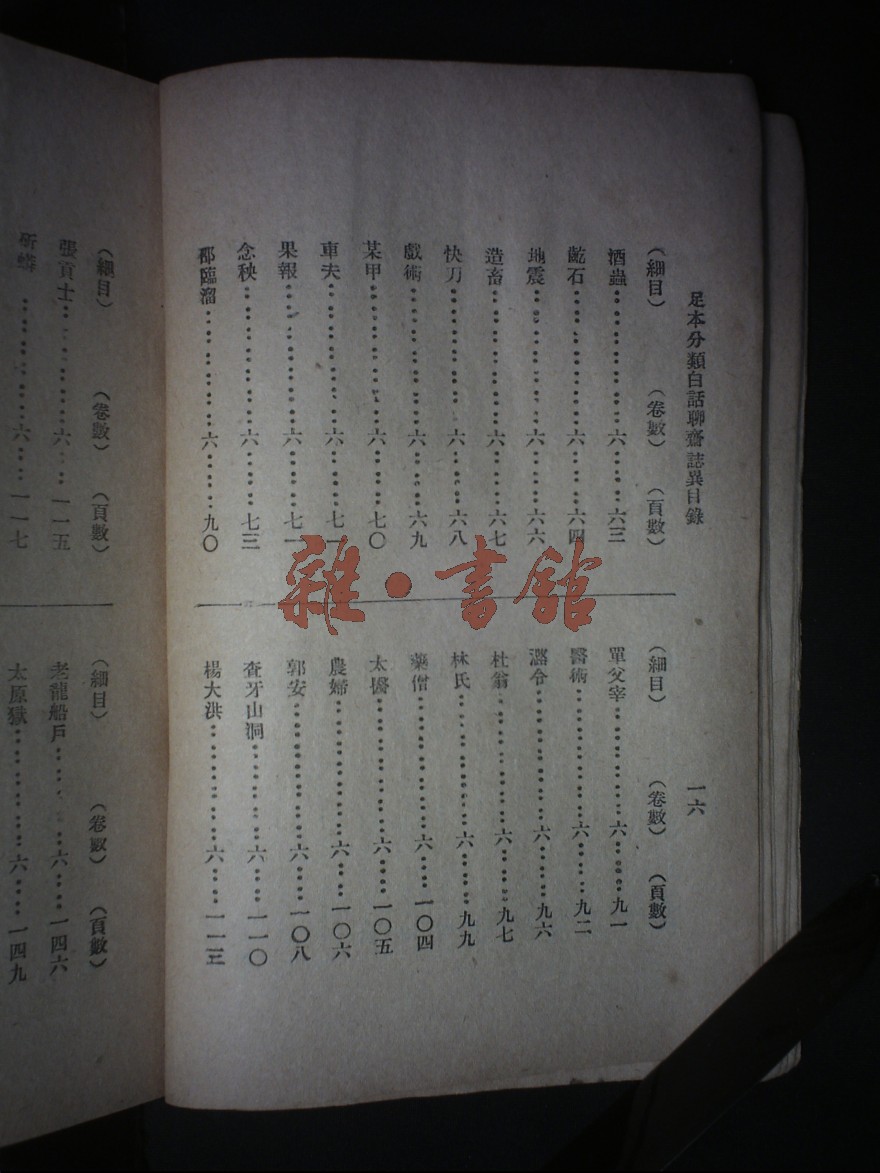 足本分類白話聊齋誌異目錄
一六
(細目) (卷數) (頁數)
酒蟲……六……六三
齕石……六……六四
地震……六……六六
造畜……六……六七
快刀……六……六八
戲術……六……六九
某甲……六……七〇
車夫……六……七一
果報……六……七一
念秧……六……七三
邵臨淄……六……九〇
(細目) (卷數) (頁數)
單父宰……六……九一
醫術……六……九二
潞令……六……九六
杜翁……六……九七
林氏……六……九九
藥僧……六……一〇四
太醫……六……一〇五
農婦……六……一〇六
郭安……六……一〇八
查牙山洞……六……一一〇
楊大洪……六……一一三
(細目) (卷數) (頁數)
張貢士……六……一一五
斫蟒……六……一一七
(細目) (卷數) (頁數)
老龍船戶……六……一四六
太原獄……六……一四九
雜·書館